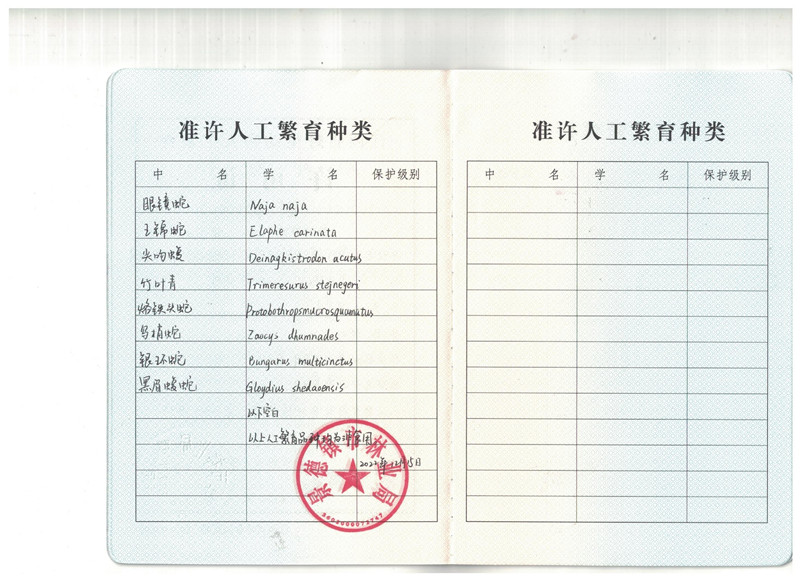 准许人工繁育种类
中 名 学 名 保护级别
眼镜蛇 Naja naja
王锦蛇 Elaphe carinata
尖吻蝮 Deinagkistrodon acutus
竹叶青 Trimeresurus stejnegeri
烙铁头蛇 Protobothropsmucrosquamatus
乌梢蛇 Zaocys dhumnades
银环蛇 Bungarus multicinctus
黑眉蝮蛇 Gloydius shedaoensis
以下空白
以上人工繁育品种均为非食用。
景德镇市林业局
2022年12月15日
准许人工繁育种类
中 名 学 名 保护级别